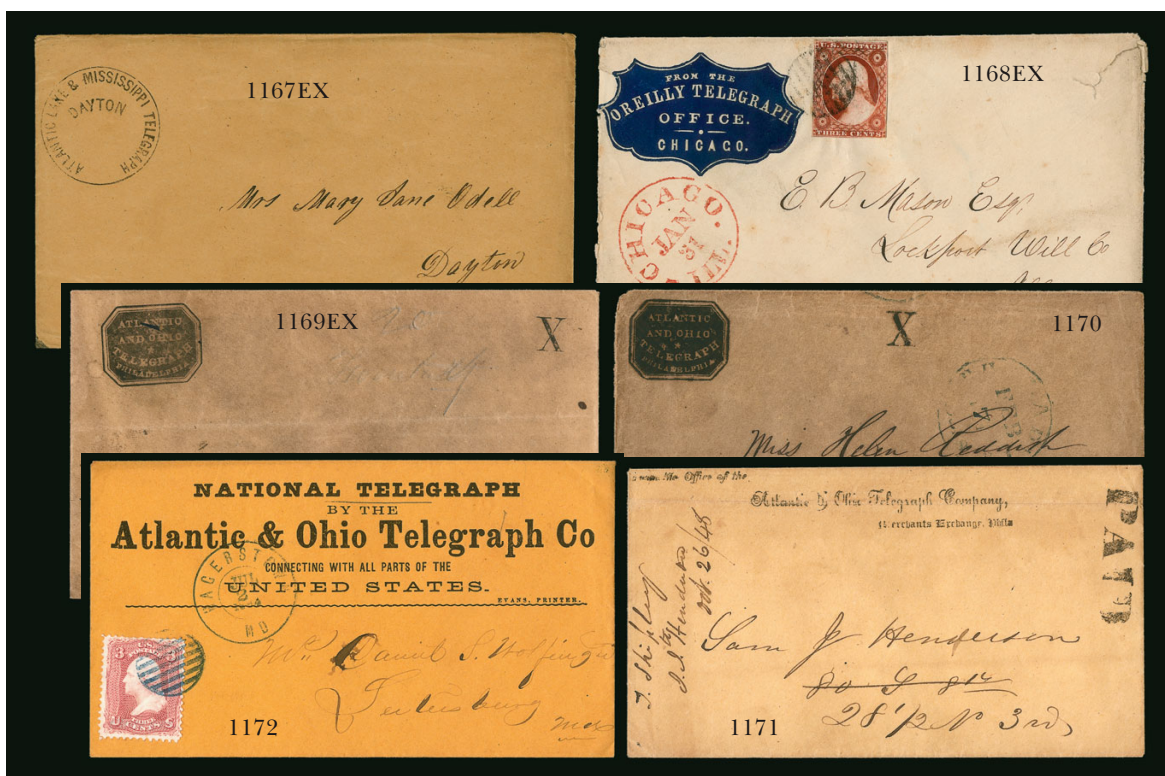 1167EX
ATLANTIC LAKE & MISSISSIPPI TELEGRAPH
DAYTON
Mrs Mary Jane Odell
Dayton
1168EX
FROM THE
OREILLY TELEGRAPH
OFFICE.
CHICAGO.
U.S. POSTAGE
THREE CENTS
CHICAGO. ILL.
JAN
31
E. B. Mason Esq.
Lockport Will Co
1169EX
ATLANTIC
AND OHIO
TELEGRAPH
PHILADELPHIA
X
1170
ATLANTIC
AND OHIO
TELEGRAPH
PHILADELPHIA
X
FEB
Miss Helen
NATIONAL TELEGRAPH
BY THE
Atlantic & Ohio Telegraph Co
CONNECTING WITH ALL PARTS OF THE
UNITED STATES.
EVANS, PRINTER.
HAGERSTOWN
JUL
2
MD
3 U.S. 3
POSTAGE
THREE
U CENTS S
Mr. Daniel S.
Md
1172
From the Office of the
Atlantic & Ohio Telegraph Company,
Merchants Exchange, Phila
PAID
T. Shipley
to
S. J. Henderson
Oct. 26/48
Sam J Henderson
80 S 8th
28 1/2 No 3rd
1171